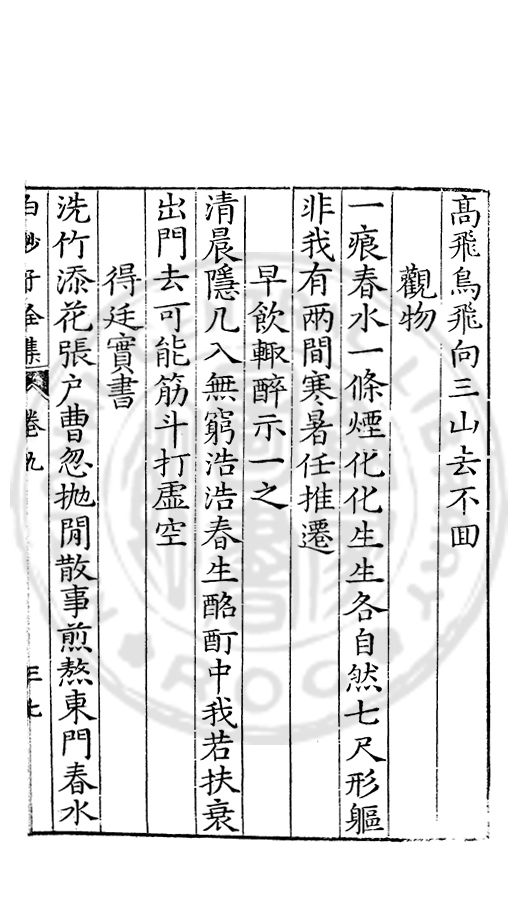 髙飛鳥飛向三山去不囬
觀物
一痕春水一條煙化化生生各自然七尺形軀
非我有兩間寒暑任推遷
早飲輙醉示一之
清晨隱几入無窮浩浩春生酩酊中我若扶衰
出門去可能筋斗打虛空
得廷實書
洗竹添花張户曹忽抛閒散事煎熬東門春水
白沙子全集 卷九 三七